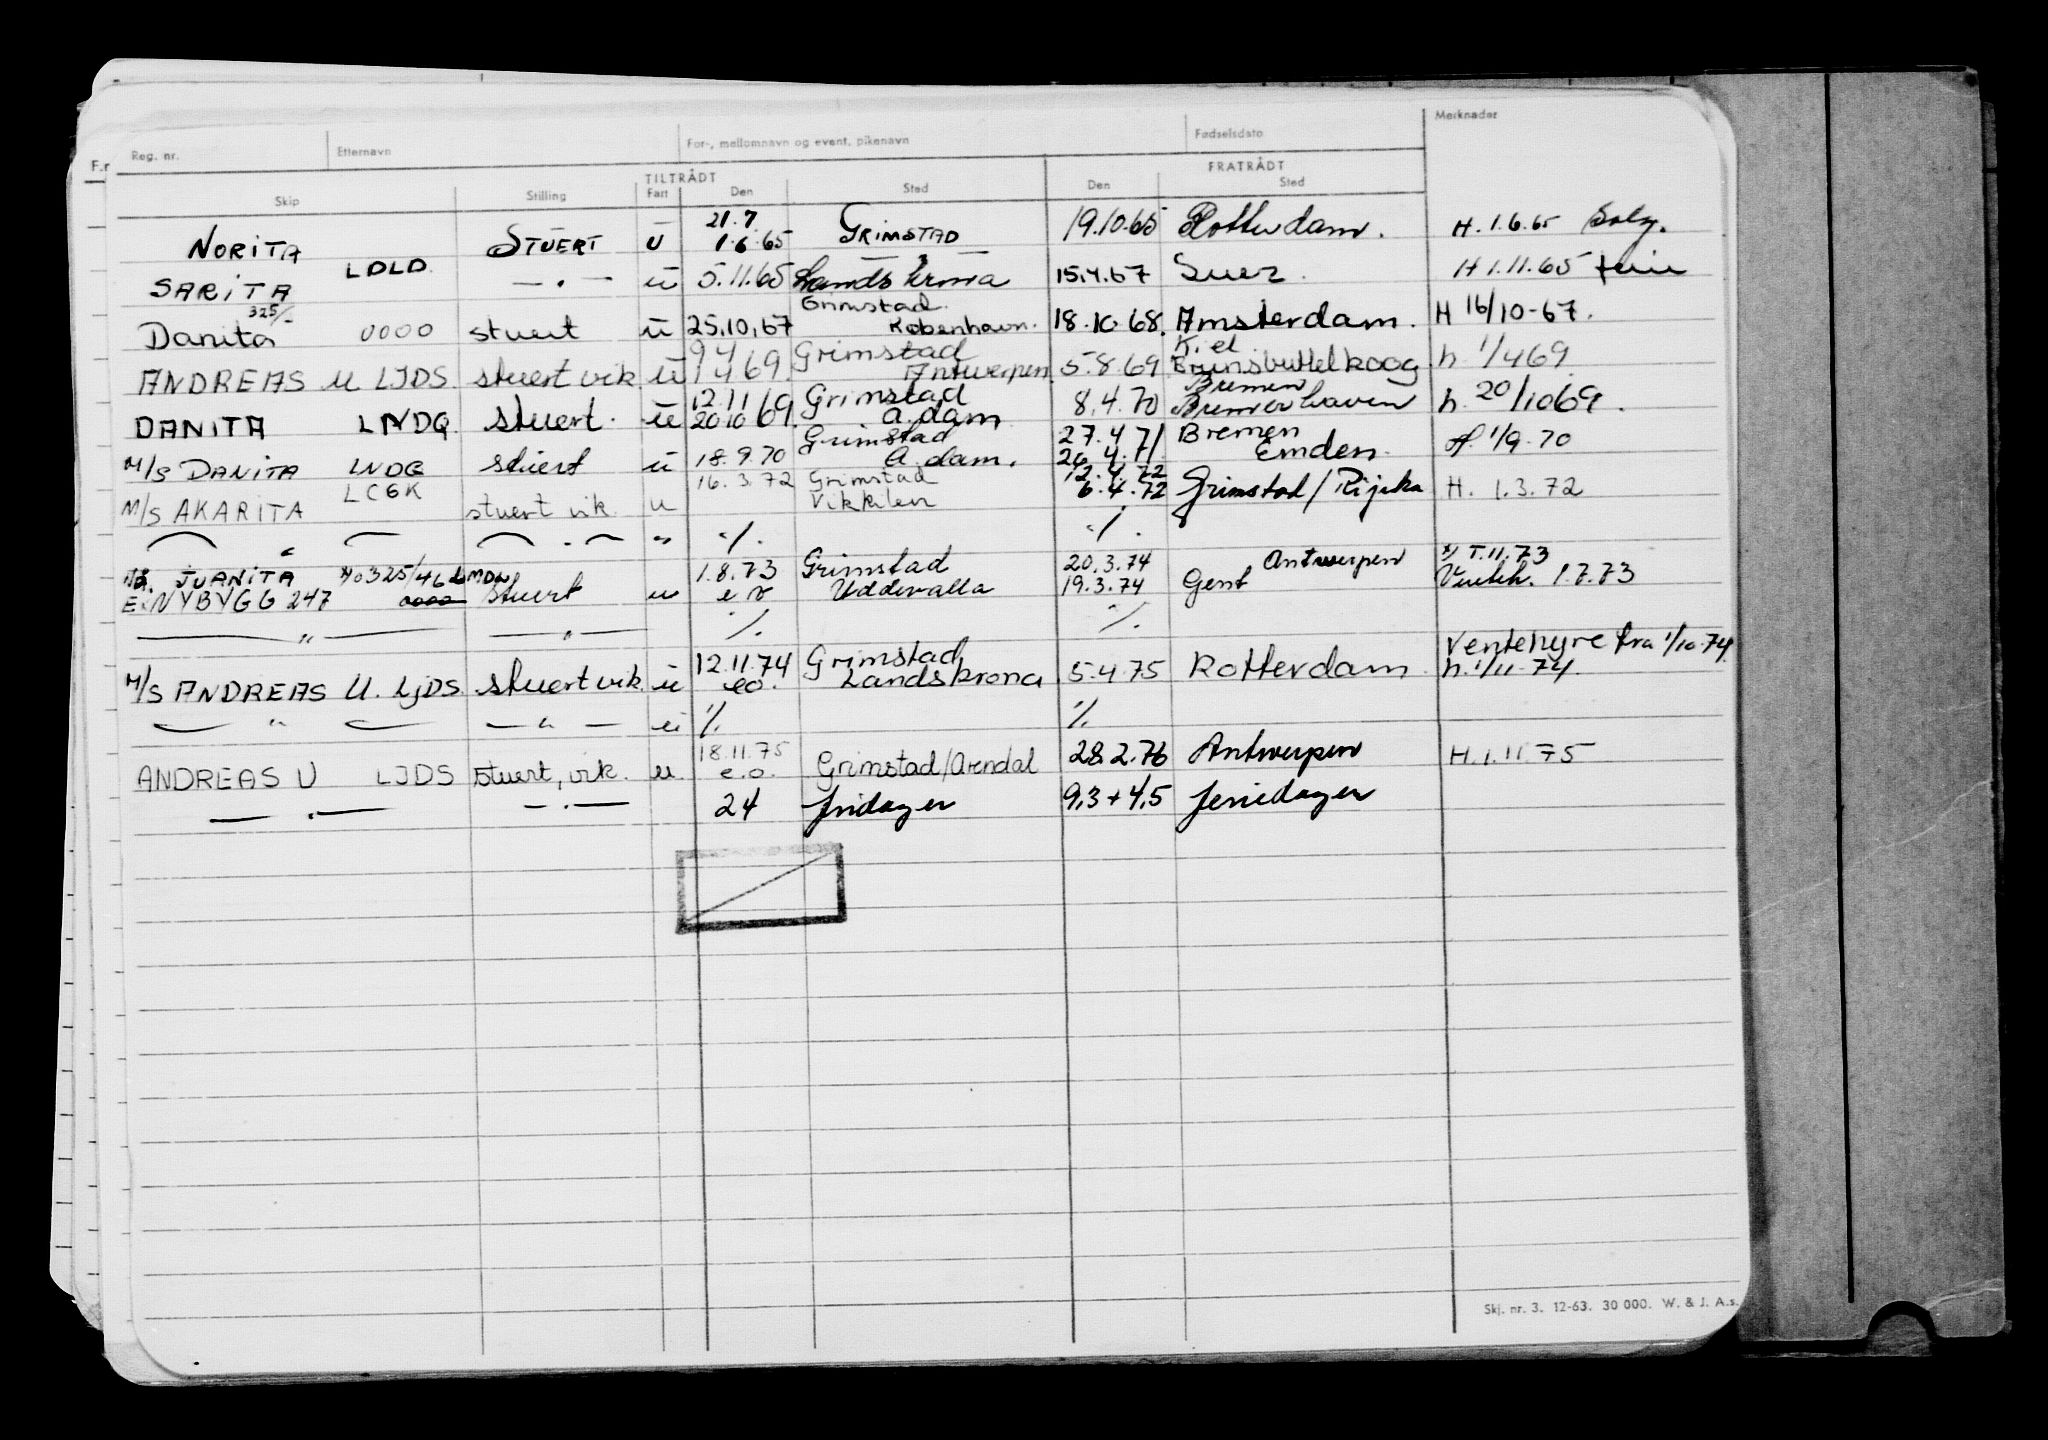 Reg. nr. Etternavn For-, mellomnavn og event. pikenavn Fødselsdato Merknader
F.r
TILTRÅDT FRATRÅDT
Skip Stilling Fart Den Sted Den Sted
21.7
NORITA STUERT U 1.6.65 GRIMSTAD 19.10.65 Rotterdam. H. 1.6.65
SARITA LDLD — . — ü 5.11.65 Landskrona 15.4.67 Suez. H 1.11.65 ferie
325/ Grimstad
Danita 0000 stuert ü 25.10.67 København. 18.10.68. Amsterdam. H 16/10-67.
9 4 Grimstad Kiel
ANDREAS U LJDS stuert vik ü 1 4 69. Antwerpen. 5.8.69 Brunsbuttelkoog h. 1/4 69
12.11 Grimstad Bremen
DANITA LNDQ. stuert. ü 20.10 69. A.dam 8.4.70 Bremerhaven h. 20/10 69.
Grimstad 27.4 71. Bremen
M/S DANITA LNDQ stuert ü 18.9.70 A.dam. 26.4.71. Emden. H. 1/9.70
LCGK 16.3.72 Grimstad 12.4.72
M/S AKARITA stuert vik. u Vikkilen 6.4.72 Grimstad/Rijeka H. 1.3.72
— " — — . — " ./. ./.
JUANITA 325/46 LMDW 1.8.73 Grimstad 20.3.74 Antwerpen 1.11.73
EX NYBYGG 247 0000 Stuert u e o Uddevalla 19.3.74 Gent Venteh. 1.7.73
— " — — " — ./. ./.
12.11.74 Grimstad Ventehyre fra 1/10-74
M/S ANDREAS U. LJDS stuert vik. ü eo. Landskrona 5.4.75 Rotterdam h. 1/11-74.
— " — — " — ü ./. ./.
18.11.75 28.2.76 Antwerpen H. 1.11.75
ANDREAS U LJDS stuert, vik. u. e.o. Grimstad/Arendal
— . — — . — 24 fridager 9,3 + 4,5 feriedager
Skj. nr. 3. 12-63. 30 000. W. & J. A.s.